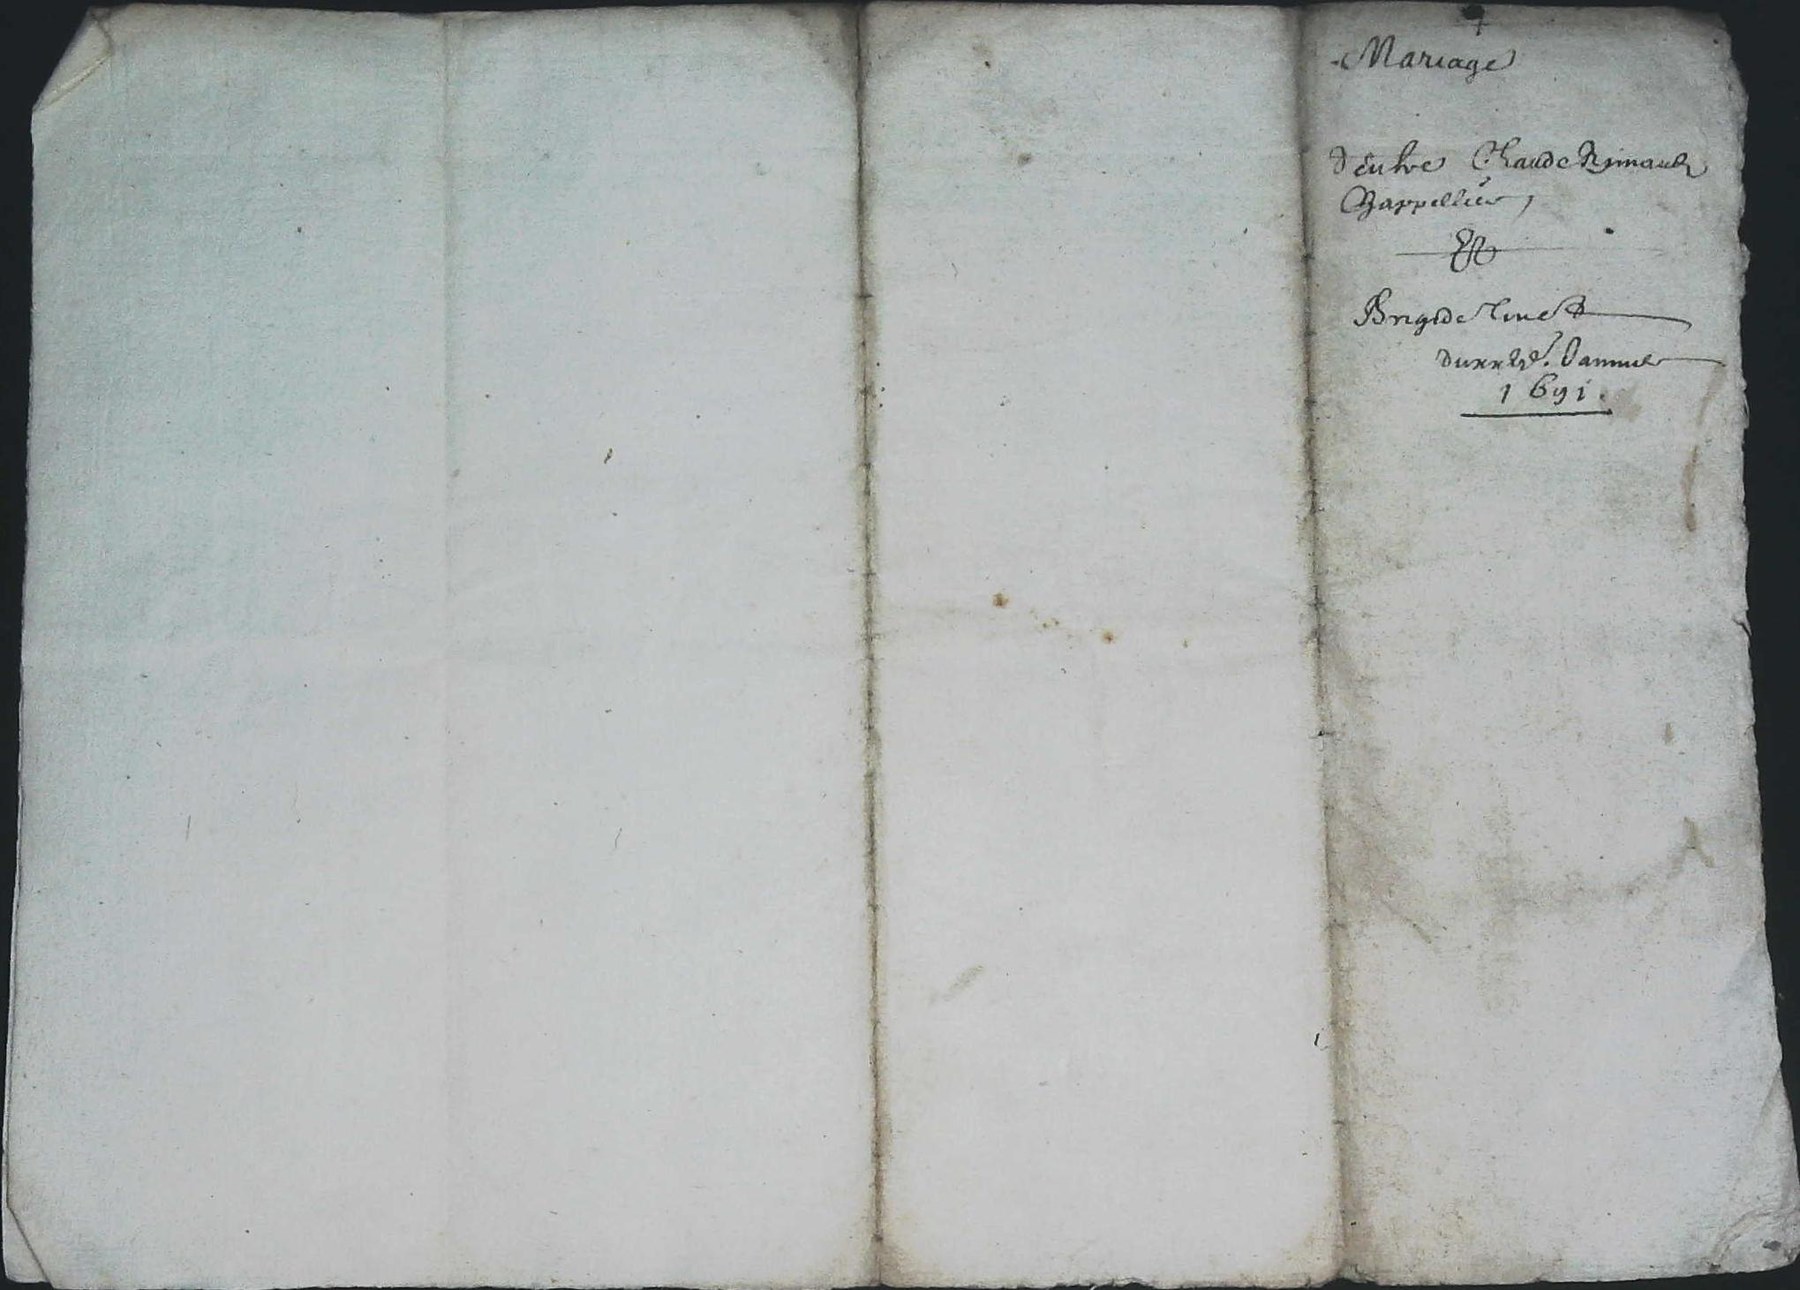 Mariage
d'entre Claude Rimault
Chappellier,
&
Brigide Tinet
du xx 8e. Janvier
1691.